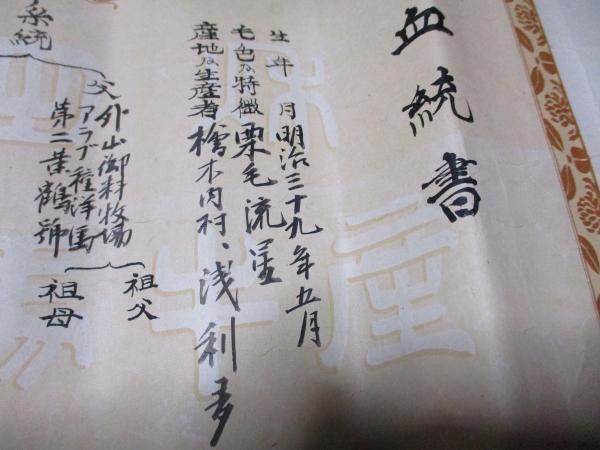 血統書
生年月明治三十九年五月
毛色及特徴栗毛流星
産地及生産者檜木内村、浅利
系統
父
外山御料牧場
アラブ種洋馬
第二葉鶴號
祖父
祖母